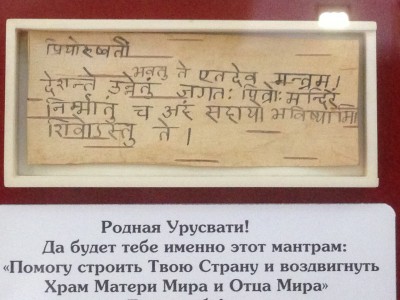 प्रियोरुष्वती
भवतु ते एतदेव मन्त्रम् ।
देशन्ते उन्नेतुं जगतः पित्रोः मन्दिरं
निर्म्मातुं च अहं सहायो भविष्यामि
शिवोऽस्तु ते ।
Родная Урусвати!
Да будет тебе именно этот мантрам:
«Помогу строить Твою Страну и воздвигнуть
Храм Матери Мира и Отца Мира»